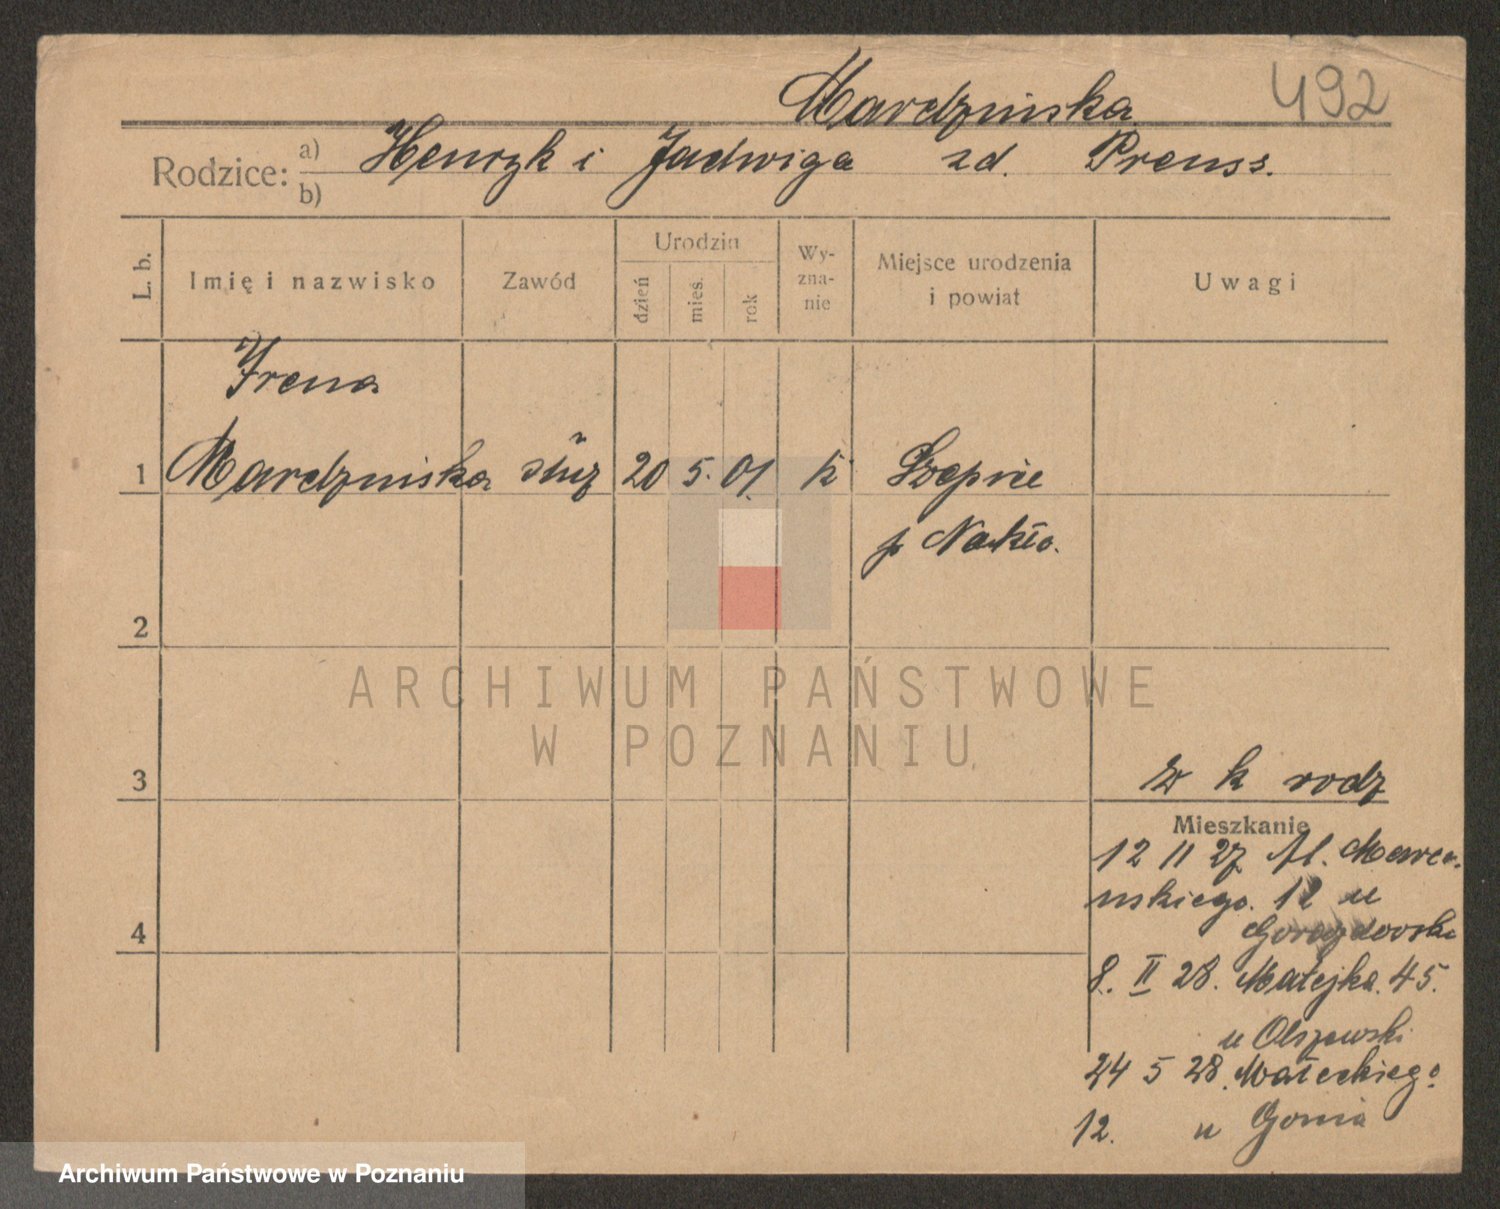 Mardzmiska
492
Rodzice: a) Henryk i Jadwiga zd. Preuss.
b)
L. b.
Imię i nazwisko
Zawód
Urodzin
dzień
mies.
rok
Wy-
zna-
nie
Miejsce urodzenia
i powiat
Uwagi
Irena
1 Mardzmiska służ 20 5. 01. k
p Nakło.
2
ARCHIWUM PAŃSTWOWE
W POZNANIU
3
k rodz
Mieszkanie
12 11 27
nskiego. 12 u
4
8. II 28. Matejka. 45.
u Olszewski
24 5 28. Małeckiego
12. u
Archiwum Państwowe w Poznaniu